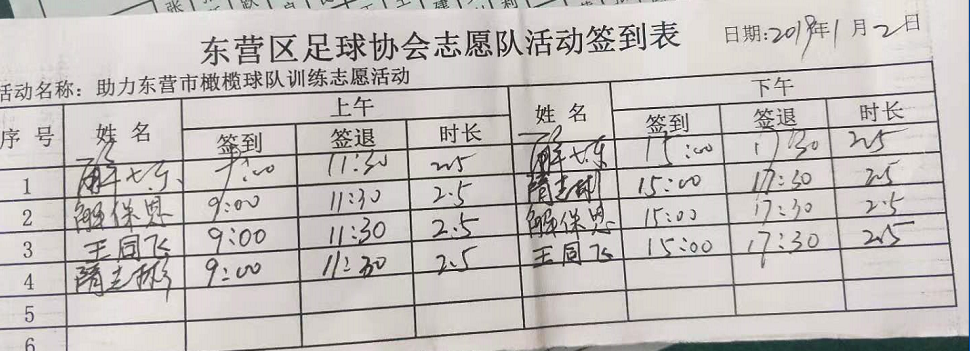 东营区足球协会志愿队活动签到表
日期:2019年1月2日
活动名称：助力东营市橄榄球队训练志愿活动
序号 姓名 上午 姓名 下午
签到 签退 时长 签到 签退 时长
1 9:00 11:30 2.5 15:00 17:30 2.5
2 解保恩 9:00 11:30 2.5 隋志彬 15:00 17:30 2.5
3 王同飞 9:00 11:30 2.5 解保恩 15:00 17:30 2.5
4 隋志彬 9:00 11:30 2.5 王同飞 15:00 17:30 2.5
5
6